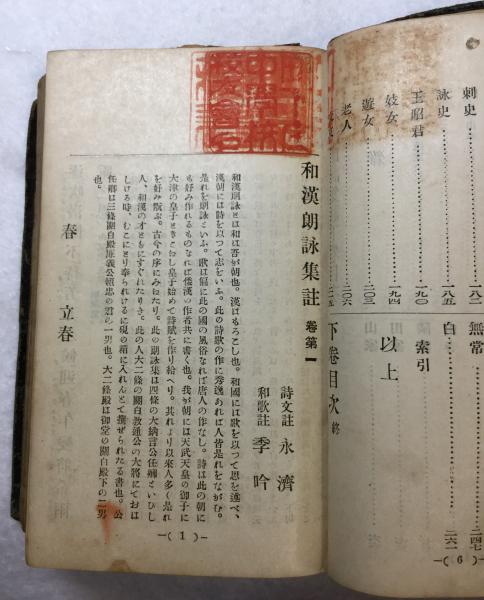 刺史
一八二
詠史
一八五
王昭君
一九〇
妓女
一九四
遊女
二〇三
老人
二〇六
無常
二四七
白
二六一
索引
以上
下卷目次 終
―( 6 )―
和漢朗詠集註 卷第一
詩文註 永濟
和歌註 季吟
和漢朗詠とは和は吾が朝也。漢はもろこし也。和國には歌を以つて思を述べ、
漢朝には詩を以つて志をいふ。此の詩歌の作に秀逸あれば人皆是れをながむ。
是れを朗詠といふ。歌は寔に此の國の風俗なれば唐人の作なし。詩は此の朝に
も好み作れるものなれば倭漢の作者共に書く也。我が朝には天武天皇の御子に
大津の皇子ときこおし皇子始めて詩賦を作り給へり。其れより以來人多く是れ
を好み翫ぶ。古今の序にみねたり。此の朗詠集は四條の大納言公任卿といひし
人、和漢の才ともにすぐれたりき。此の人大二條の關白敎通公の大將にておは
しける時、むこにとり奉られけるに硯の箱に入れんとて撰ぜられたる書也。公
任卿は三條關白殿廉義公賴忠の君の一男也。大二條殿は御堂の關白殿下の二男
也。
春 立春
―( 1 )―